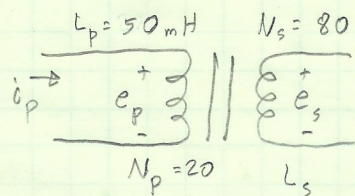 L_p = 50 mH N_s = 80
i_p + e_p - + e_s -
N_p = 20 L_s